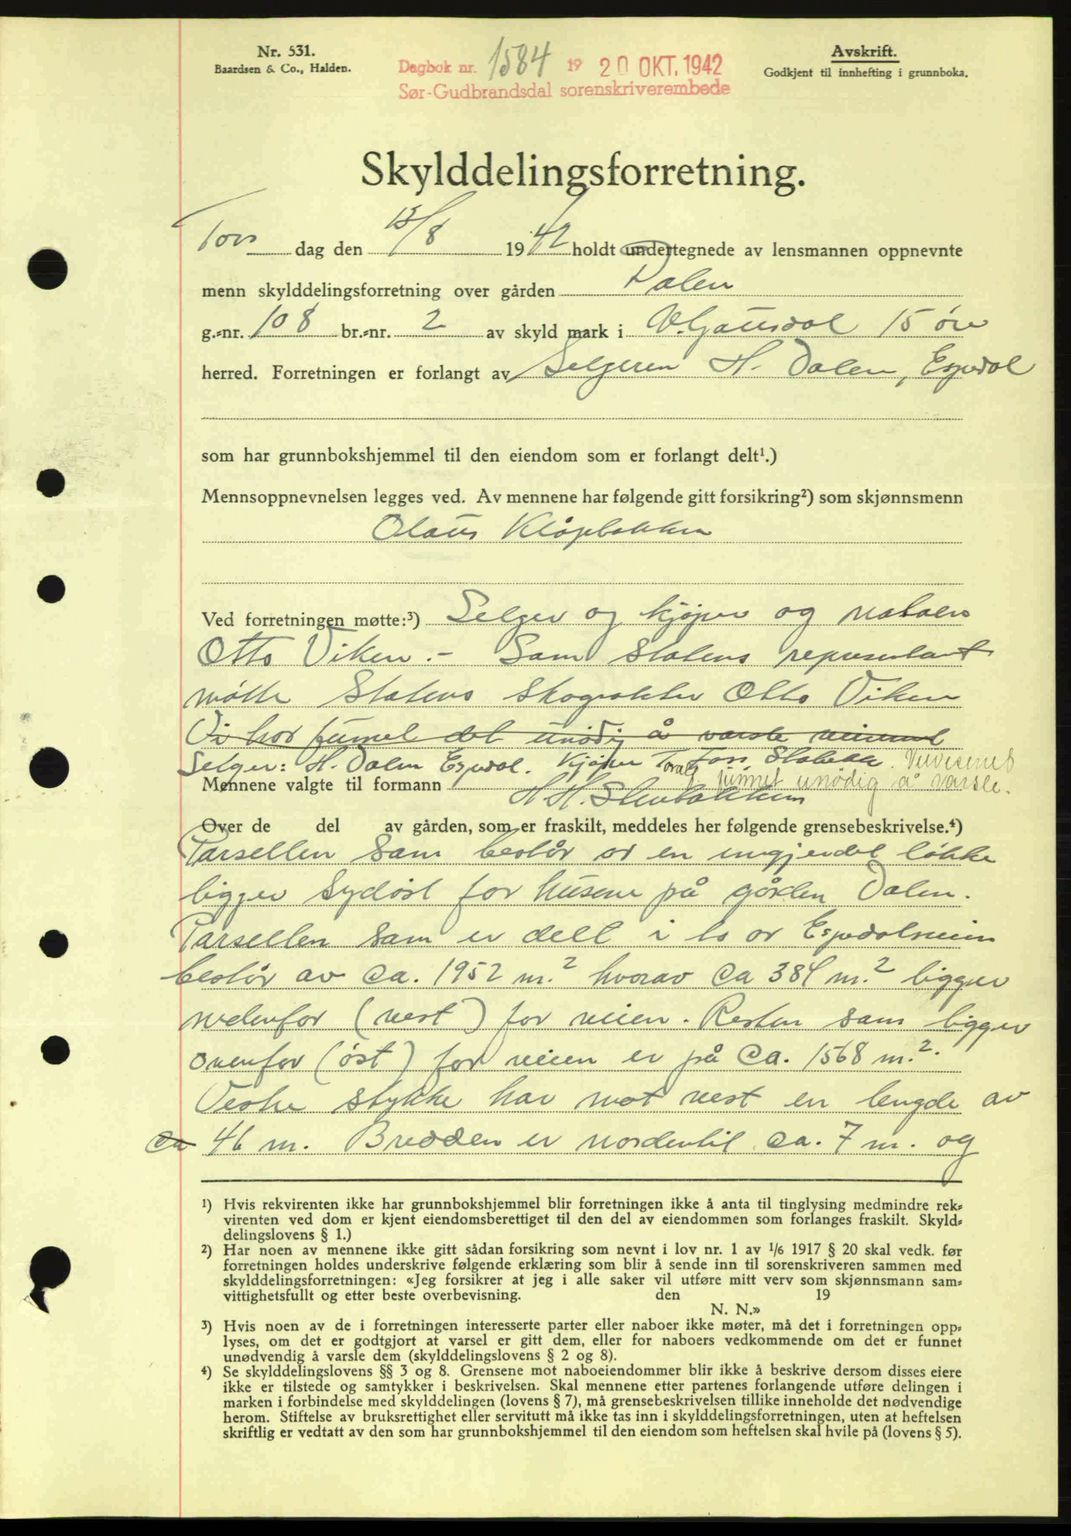 Nr. 531.
Baardsen & Co., Halden.
Dagbok nr. 1584 19 20 OKT. 1942
Sør-Gudbrandsdal sorenskriverembede
Avskrift.
Godkjent til innhefting i grunnboka.
Skylddelingsforretning.
Tors dag den 13/8 1942 holdt undertegnede av lensmannen oppnevnte
menn skylddelingsforretning over gården Dalen
g.-nr. 108 br.-nr. 2 av skyld mark i V. Gausdal 15 øre
herred. Forretningen er forlangt av Selgeren H. Dalen, Espedal
som har grunnbokshjemmel til den eiendom som er forlangt delt¹.)
Mennsoppnevnelsen legges ved. Av mennene har følgende gitt forsikring²) som skjønnsmenn
Olaus Kløpbakken
Ved forretningen møtte:³) Selger og kjøper og naboen
Otto Viken. - Som Statens representant
møtte Statens skogvokter Otto Viken
Vi har funnet det unødig å varsle
Selger: H. Dalen Espedal. Kjøper Toralf Veivesenet
Mennene valgte til formann funnet unødig å varsle.
Over de del av gården, som er fraskilt, meddeles her følgende grensebeskrivelse.⁴)
Parsellen som består av en inngjerdet løkke
ligger sydøst for husene på gården Dalen.
Parsellen som er delt i to av Espedalsveien
består av ca. 1952 m.² hvorav ca 384 m.² ligger
nedenfor (vest) for veien. Resten som ligger
ovenfor (øst) for veien er på ca. 1568 m.².
Vestre stykke har mot vest en lengde av
ca 46 m. Bredden er nordentil ca. 7 m. og
¹) Hvis rekvirenten ikke har grunnbokshjemmel blir forretningen ikke å anta til tinglysing medmindre rek-
virenten ved dom er kjent eiendomsberettiget til den del av eiendommen som forlanges fraskilt. Skyld-
delingslovens § 1.)
²) Har noen av mennene ikke gitt sådan forsikring som nevnt i lov nr. 1 av 1/6 1917 § 20 skal vedk. før
forretningen holdes underskrive følgende erklæring som blir å sende inn til sorenskriveren sammen med
skylddelingsforretningen: «Jeg forsikrer at jeg i alle saker vil utføre mitt verv som skjønnsmann sam-
vittighetsfullt og etter beste overbevisning. den 19
N. N.»
³) Hvis noen av de i forretningen interesserte parter eller naboer ikke møter, må det i forretningen opp-
lyses, om det er godtgjort at varsel er gitt dem, eller for naboers vedkommende om det er funnet
unødvendig å varsle dem (skylddelingslovens § 2 og 8).
⁴) Se skylddelingslovens §§ 3 og 8. Grensene mot naboeiendommer blir ikke å beskrive dersom disses eiere
ikke er tilstede og samtykker i beskrivelsen. Skal mennene etter partenes forlangende utføre delingen i
marken i forbindelse med skylddelingen (lovens § 7), må grensebeskrivelsen tillike inneholde det nødvendige
herom. Stiftelse av bruksrettighet eller servitutt må ikke tas inn i skylddelingsforretningen, uten at heftelsen
skriftlig er vedtatt av den som har grunnbokshjemmel til den eiendom som heftelsen skal hvile på (lovens § 5).